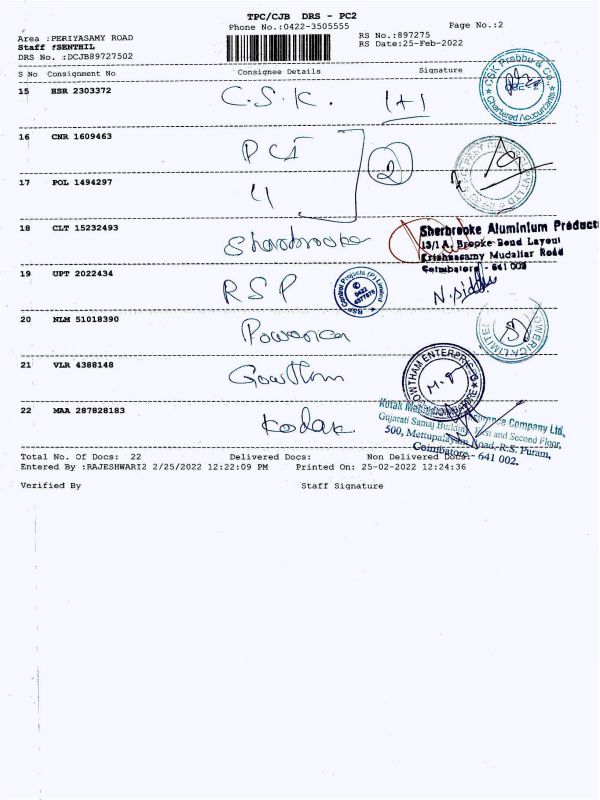 TPC/CJB DRS - PC2
Phone No.:0422-3505555
Page No.:2
Area :PERIYASAMY ROAD
RS No.:897275
Staff :SENTHIL
RS Date:25-Feb-2022
DRS No. :DCJB89727502
S No Consignment No Consignee Details Signature
15 HSR 2303372 C.S.K. 1+1
CSK Prabhu & Co.
Chartered Accountants
16 CNR 1609463 PCI 2
17 POL 1494297 4
18 CLT 15232493 Sharobrooke
Sherbrooke Aluminium Products
13/1 A, Brooke Bond Layout
Krishnasamy Mudaliar Road
Coimbatore - 641 001
19 UPT 2022434 RSP
RSP Control Projects (P) Limited
0422
N.Siddhu
20 NLM 51018390 Powerica
POWERICA LIMITED
21 VLR 4388148 Gowtham
GOWTHAM ENTERPRISES
M.P
22 MAA 287828183 Kodak
Kotak Insurance Company Ltd,
Gujarati Samaj Building, First and Second Floor,
500, Mettupalayam Road, R.S. Puram,
Coimbatore - 641 002.
Total No. Of Docs: 22 Delivered Docs: Non Delivered Docs:
Entered By :RAJESHWARI2 2/25/2022 12:22:09 PM Printed On: 25-02-2022 12:24:36
Verified By Staff Signature